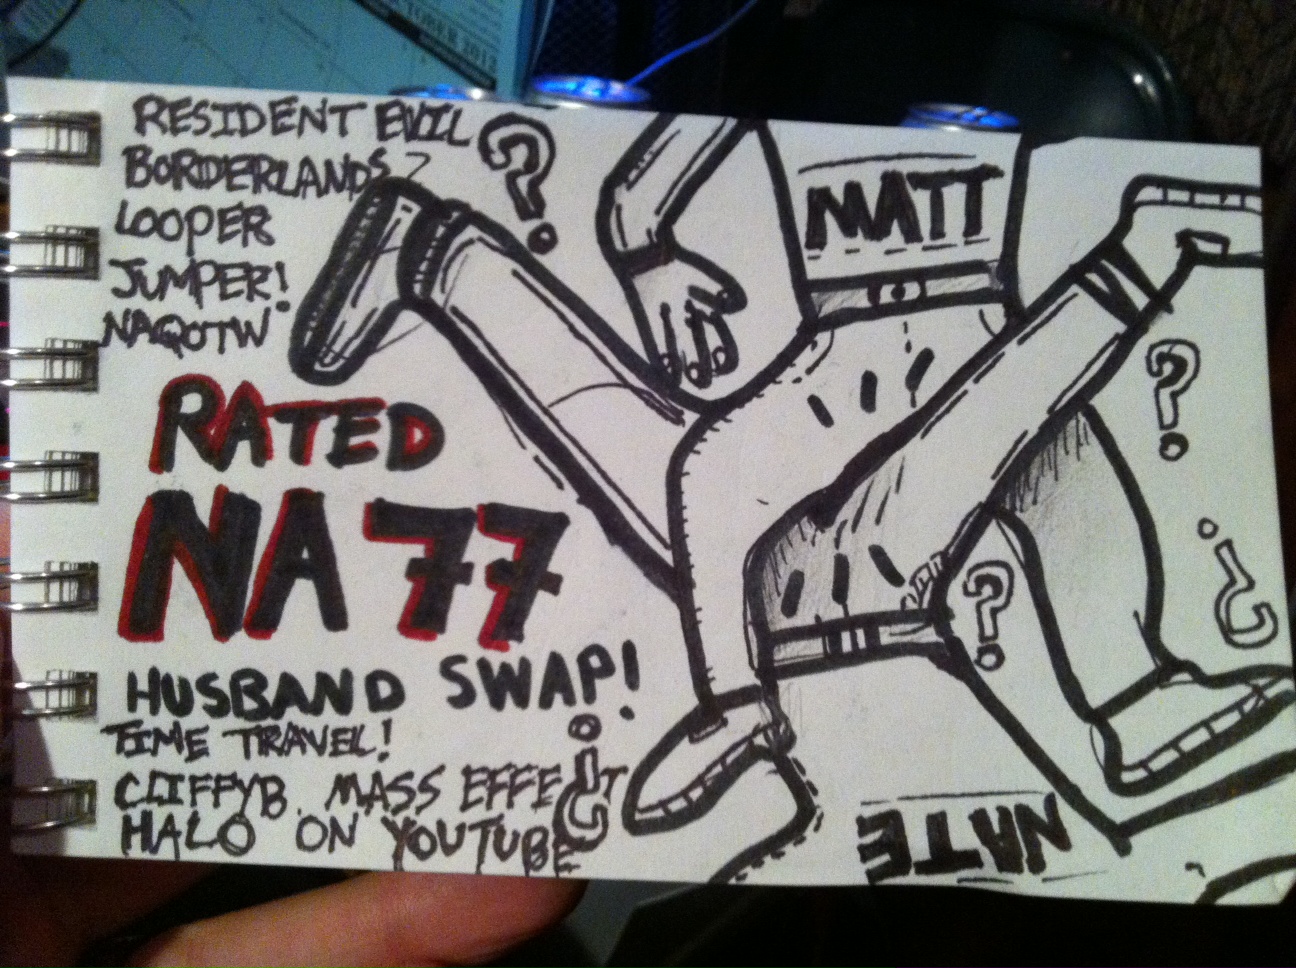 OCTOBER 2012
RESIDENT EVIL
BORDERLANDS 2
LOOPER
JUMPER!
NAQOTW
RATED
NA 77
HUSBAND SWAP!
TIME TRAVEL!
CLIFFYB. MASS EFFECT
HALO ON YOUTUBE
?
MATT
?
?
¿
¿
NATE